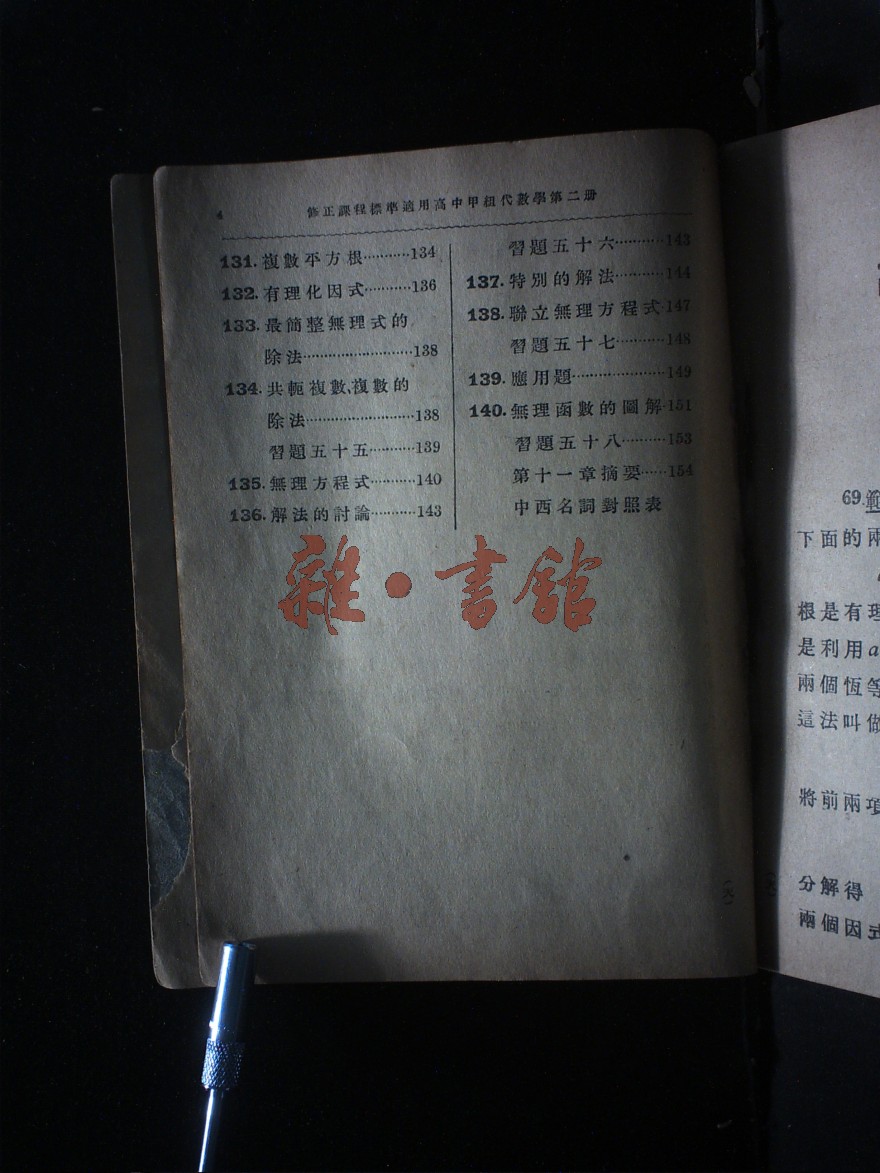 4
修正課程標準適用高中甲組代數學第二册
131. 複數平方根⋯⋯⋯134
132. 有理化因式⋯⋯⋯136
133. 最簡整無理式的
除法⋯⋯⋯⋯⋯⋯138
134. 共軛複數、複數的
除法⋯⋯⋯⋯⋯⋯138
習題五十五⋯⋯⋯139
135. 無理方程式⋯⋯⋯140
136. 解法的討論⋯⋯⋯143
習題五十六⋯⋯⋯143
137. 特別的解法⋯⋯⋯144
138. 聯立無理方程式·147
習題五十七⋯⋯⋯148
139. 應用題⋯⋯⋯⋯⋯149
140. 無理函數的圖解·151
習題五十八⋯⋯⋯153
第十一章摘要⋯⋯154
中西名詞對照表
雜·書館
69.範
下面的兩
根是有理
是利用a
兩個恆等
這法叫做
將前兩項
分解得
兩個因式